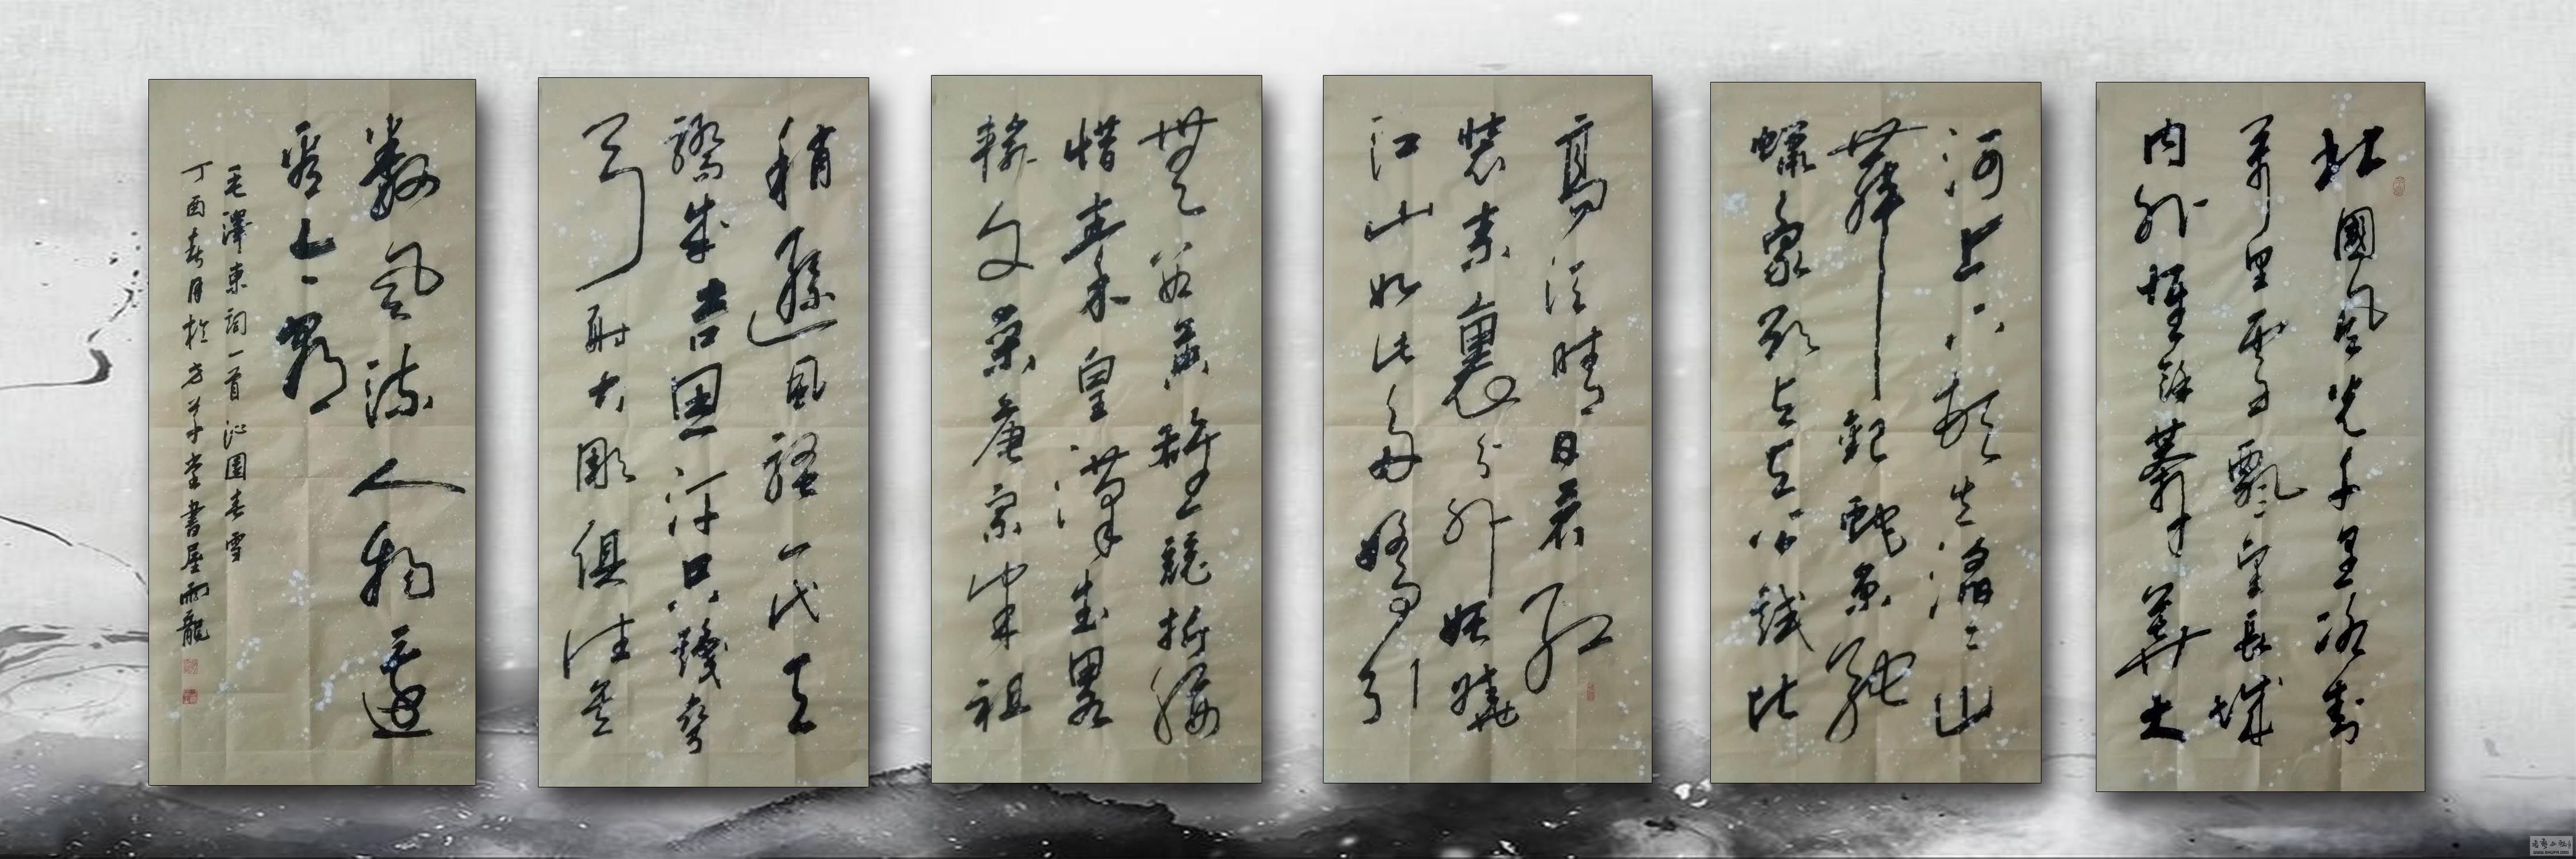 北國風光千里冰封
萬里雪飄望長城
內外惟餘莽莽大
河上下頓失滔〻山
舞銀蛇原馳
蠟象欲与天公試比
高須晴日看紅
裝素裹分外妖嬈
江山如此多嬌引
無數英雄競折腰
惜秦皇漢武略
輸文采唐宗宋祖
稍遜風騷一代天
驕成吉思汗只識彎
弓射大雕俱往矣
數風流人物還
看今朝
毛澤東詞一首沁園春雪
丁酉春月於方草堂書屋雨龍